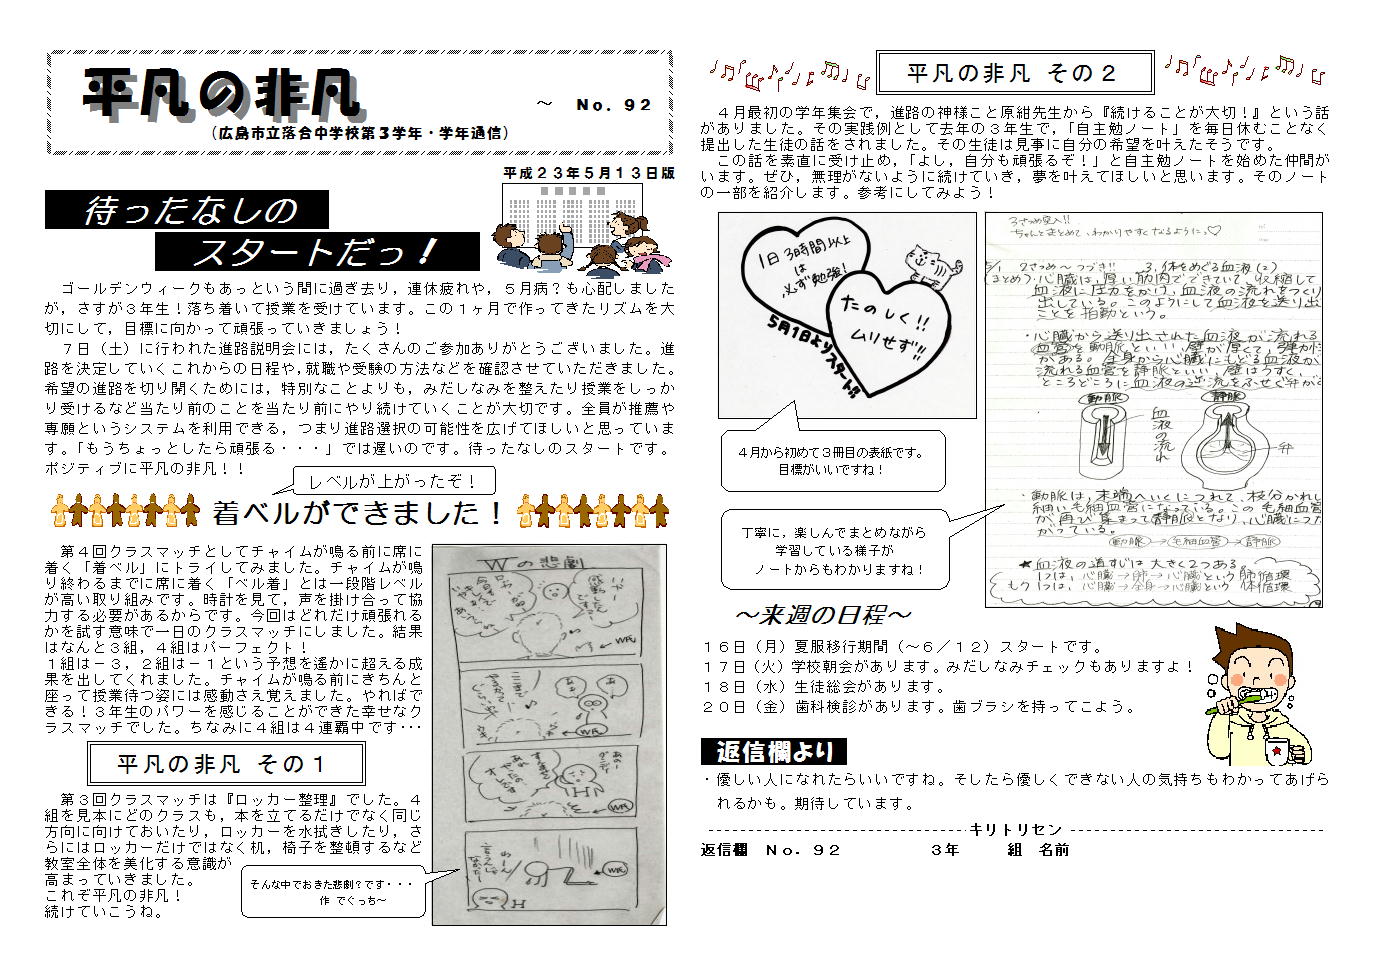 平凡の非凡
～ No. 92
(広島市立落合中学校第3学年・学年通信)
平成23年5月13日版
待ったなしの
スタートだっ!
ゴールデンウィークもあっという間に過ぎ去り，連休疲れや，5月病？も心配しました
が，さすが3年生！落ち着いて授業を受けています。この1ヶ月で作ってきたリズムを大
切にして，目標に向かって頑張っていきましょう！
7日（土）に行われた進路説明会には，たくさんのご参加ありがとうございました。進
路を決定していくこれからの日程や,就職や受験の方法などを確認させていただきました。
希望の進路を切り開くためには，特別なことよりも，みだしなみを整えたり授業をしっか
り受けるなど当たり前のことを当たり前にやり続けていくことが大切です。全員が推薦や
専願というシステムを利用できる，つまり進路選択の可能性を広げてほしいと思っていま
す。「もうちょっとしたら頑張る・・・」では遅いのです。待ったなしのスタートです。
ポジティブに平凡の非凡！！
レベルが上がったぞ！
着ベルができました！
第4回クラスマッチとしてチャイムが鳴る前に席に
着く「着ベル」にトライしてみました。チャイムが鳴
り終わるまでに席に着く「ベル着」とは一段階レベル
が高い取り組みです。時計を見て，声を掛け合って協
力する必要があるからです。今回はどれだけ頑張れる
かを試す意味で一日のクラスマッチにしました。結果
はなんと3組，4組はパーフェクト！
1組は－3，2組は－1という予想を遙かに超える成
果を出してくれました。チャイムが鳴る前にきちんと
座って授業待つ姿には感動さえ覚えました。やればで
きる！3年生のパワーを感じることができた幸せなク
ラスマッチでした。ちなみに4組は4連覇中です･･･
Wの悲劇
平凡の非凡 その1
第3回クラスマッチは『ロッカー整理』でした。4
組を見本にどのクラスも，本を立てるだけでなく同じ
方向に向けておいたり，ロッカーを水拭きしたり，さ
らにはロッカーだけではなく机，椅子を整頓するなど
教室全体を美化する意識が
高まっていきました。
これぞ平凡の非凡！
続けていこうね。
そんな中でおきた悲劇？です・・・
作 でぐっち～
平凡の非凡 その2
4月最初の学年集会で，進路の神様こと原紺先生から『続けることが大切！』という話
がありました。その実践例として去年の3年生で，「自主勉ノート」を毎日休むことなく
提出した生徒の話をされました。その生徒は見事に自分の希望を叶えたそうです。
この話を素直に受け止め，「よし，自分も頑張るぞ！」と自主勉ノートを始めた仲間が
います。ぜひ，無理がないように続けていき，夢を叶えてほしいと思います。そのノート
の一部を紹介します。参考にしてみよう！
1日3時間以上
は
必ず勉強!
たのしく!!
ムリせず!!
5月1日よりスタート!!
4月から初めて3冊目の表紙です。
目標がいいですね！
丁寧に，楽しんでまとめながら
学習している様子が
ノートからもわかりますね！
3さつめ突入!!
ちゃんとまとめて、わかりやすくなるように。♡
2さつめ～つづき!! 3.体をめぐる血液(2)
(まとめ)・心臓は、厚い筋肉でできていて、収縮して
血液に圧力をかけ、血液の流れをつくり
出している。このようにして血液を送り出
ことを拍動という。
・心臓から送り出された血液が流れる
血管を動脈といい、壁が厚くて、弾力
がある。全身から心臓にもどる血液が
流れる血管を静脈といい、壁はうすく、
ところどころに血液の逆流をふせぐ弁が
動脈
静脈
血液の流れ
弁
・動脈は、末端へいくにつれて、枝分かれし
細い毛細血管になっている。この毛細血管
が再び集まって静脈となり、心臓につな
がっている。
動脈→毛細血管→静脈
★血液の道すじは大きく2つある。
1つは、心臓→肺→心臓という肺循環
もう1つは、心臓→全身→心臓という体循環
～来週の日程～
16日（月）夏服移行期間（～6／12）スタートです。
17日（火）学校朝会があります。みだしなみチェックもありますよ！
18日（水）生徒総会があります。
20日（金）歯科検診があります。歯ブラシを持ってこよう。
返信欄より
・優しい人になれたらいいですね。そしたら優しくできない人の気持ちもわかってあげら
れるかも。期待しています。
キリトリセン
返信欄 No. 92 3年 組 名前